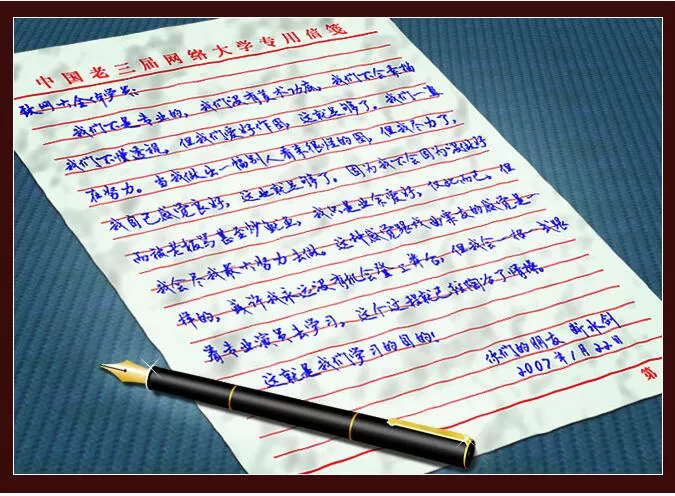 中国老三届网络大学专用信笺
致网大全体学员:
我们不是专业的,我们没有美术功底,我们不会素描
我们不懂透视。但我们爱好作图,这就足够了。我们一直
在努力。当我做出一幅别人看来很怪的图,但我尽力了,
我自己感觉良好,这也就足够了。因为我不会因为没做好
而被老板骂甚至炒鱿鱼,我仅是业余爱好,仅此而已。但
我会尽我最大努力去做。这种感觉跟戏曲票友的感觉是一
样的,或许我永远没有机会登上舞台,但我会一招一式跟
着专业演员去学习,这个过程就已经陶冶了情操。
这就是我们学习的目的!
你们的朋友 断水剑
2007年1月22日
第